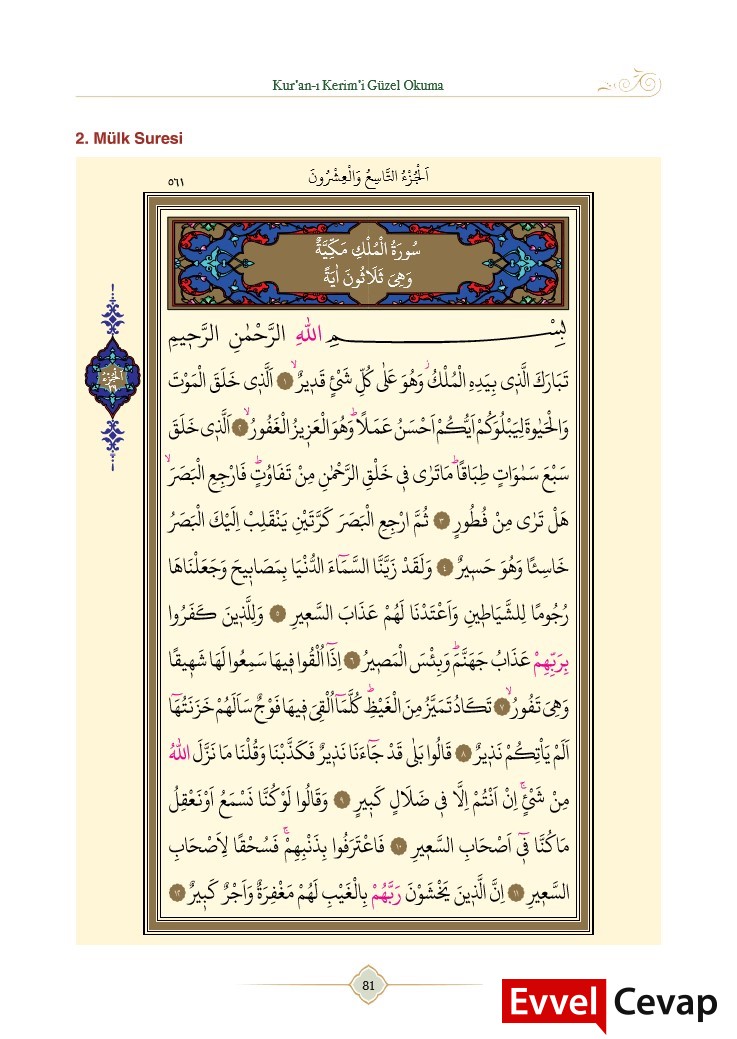 Kur'an-ı Kerim'i Güzel Okuma
2. Mülk Suresi
اَلْجُزْءُ التَّاسِعُ وَالْعِشْرُونَ
٥٦١
سُورَةُ الْمُلْكِ مَكِّيَّةٌ
وَهِيَ ثَلَاثُونَ اٰيَةً
بِسْمِ اللّٰهِ الرَّحْمٰنِ الرَّحٖيمِ
تَبَارَكَ الَّذٖي بِيَدِهِ الْمُلْكُؗ وَهُوَ عَلٰى كُلِّ شَيْءٍ قَدٖيرٌۙ ﴿١﴾ اَلَّذٖي خَلَقَ الْمَوْتَ
وَالْحَيٰوةَ لِيَبْلُوَكُمْ اَيُّكُمْ اَحْسَنُ عَمَلًاؕ وَهُوَ الْعَزٖيزُ الْغَفُورُۙ ﴿٢﴾ اَلَّذٖي خَلَقَ
سَبْعَ سَمٰوَاتٍ طِبَاقًاؕ مَا تَرٰى فٖي خَلْقِ الرَّحْمٰنِ مِنْ تَفَاوُتٍؕ فَارْجِعِ الْبَصَرَۙ
هَلْ تَرٰى مِنْ فُطُورٍ ﴿٣﴾ ثُمَّ ارْجِعِ الْبَصَرَ كَرَّتَيْنِ يَنْقَلِبْ اِلَيْكَ الْبَصَرُ
خَاسِئًا وَهُوَ حَسٖيرٌ ﴿٤﴾ وَلَقَدْ زَيَّنَّا السَّمَٓاءَ الدُّنْيَا بِمَصَابٖيحَ وَجَعَلْنَاهَا
رُجُومًا لِلشَّيَاطٖينِ وَاَعْتَدْنَا لَهُمْ عَذَابَ السَّعٖيرِ ﴿٥﴾ وَلِلَّذٖينَ كَفَرُوا
بِرَبِّهِمْ عَذَابُ جَهَنَّمَؕ وَبِئْسَ الْمَصٖيرُ ﴿٦﴾ اِذَٓا اُلْقُوا فٖيهَا سَمِعُوا لَهَا شَهٖيقًا
وَهِيَ تَفُورُۙ ﴿٧﴾ تَكَادُ تَمَيَّزُ مِنَ الْغَيْظِؕ كُلَّمَٓا اُلْقِيَ فٖيهَا فَوْجٌ سَاَلَهُمْ خَزَنَتُهَٓا
اَلَمْ يَأْتِكُمْ نَذٖيرٌ ﴿٨﴾ قَالُوا بَلٰى قَدْ جَٓاءَنَا نَذٖيرٌ فَكَذَّبْنَا وَقُلْنَا مَا نَزَّلَ اللّٰهُ
مِنْ شَيْءٍۚ اِنْ اَنْتُمْ اِلَّا فٖي ضَلَالٍ كَبٖيرٍ ﴿٩﴾ وَقَالُوا لَوْ كُنَّا نَسْمَعُ اَوْ نَعْقِلُ
مَا كُنَّا فٖٓي اَصْحَابِ السَّعٖيرِ ﴿١٠﴾ فَاعْتَرَفُوا بِذَنْبِهِمْۚ فَسُحْقًا لِاَصْحَابِ
السَّعٖيرِ ﴿١١﴾ اِنَّ الَّذٖينَ يَخْشَوْنَ رَبَّهُمْ بِالْغَيْبِ لَهُمْ مَغْفِرَةٌ وَاَجْرٌ كَبٖيرٌ ﴿١٢﴾
اَلْجُزْءُ
٢٩
81
Evvel Cevap